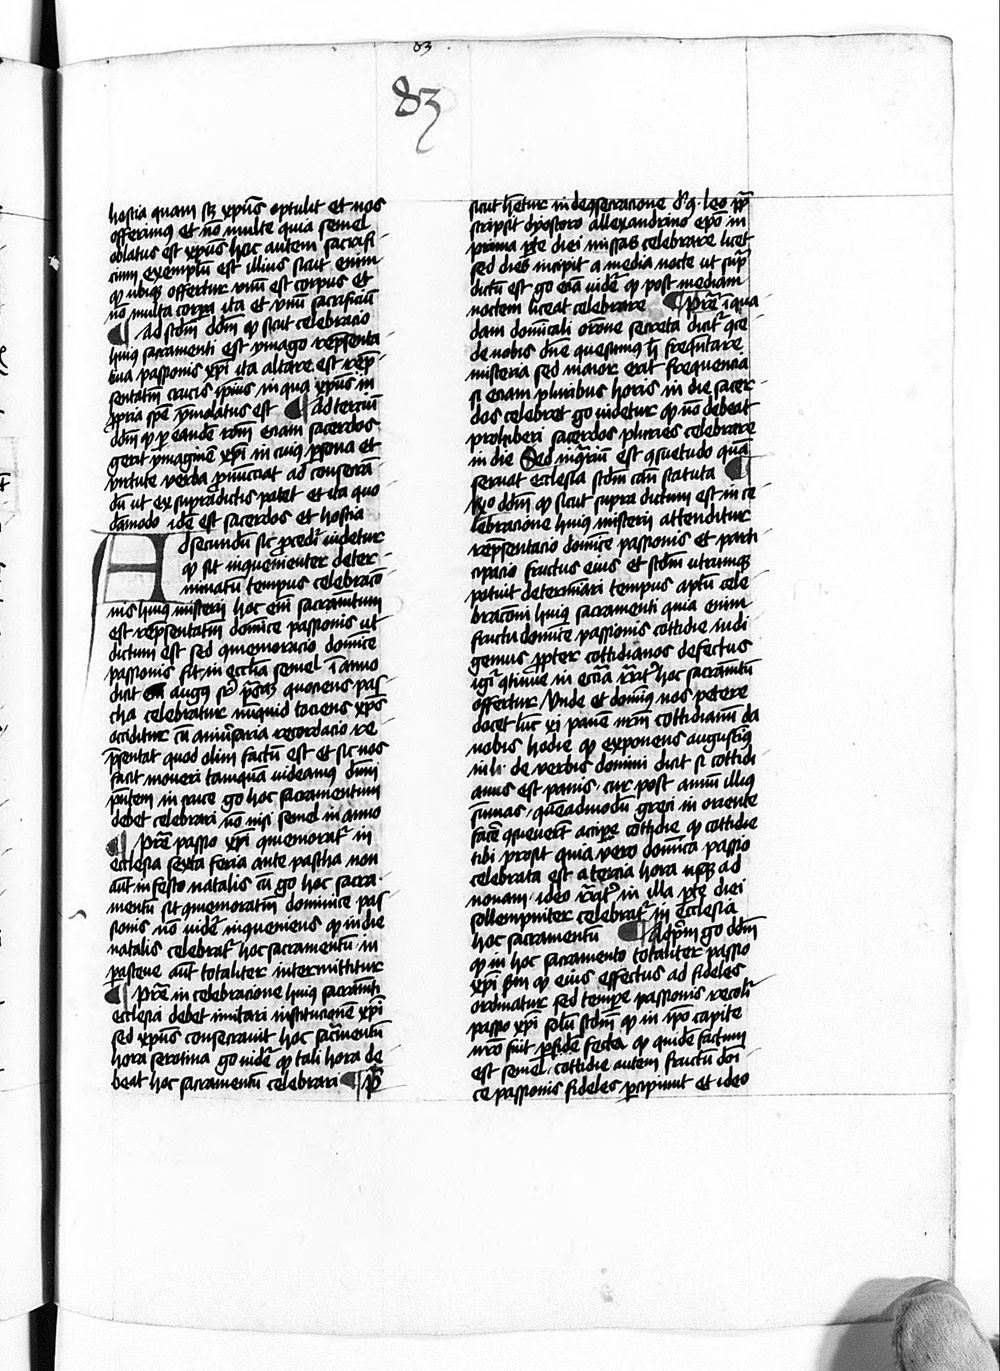 83
83
hostia quam sz xpūs optulit et nos
offerimus et nō multe quia semel
oblatus est xpūs hoc autem sacrifi
cium exemplū est illius sicut enim
qd ubiqz offertur vnū est corpus et
nō multa corpa ita et vnū sacrificiū
¶ Ad scdm ddm qd sicut celebracio
huius sacramenti est ymago repsenta
tiua passionis xpi ita altare est rep
sentatiū crucis ipius in qua xpūs in
ppria spē ymolatus est ¶ ad terciū
ddm qd p eandē rōm eciam sacerdos
gerit ymaginē xpi in cuius psona et
virtute verba pnūciat ad consecrā
dū ut ex supradictis patet et ita quo
dāmodo idē est sacerdos et hostia
Ad secundū sic procedi videtur
qd sit inqueniēter deter
minatū tempus celebracō
nis huius misterii hoc eni sacramtum
est repsentatiū domīce passionis ut
dictum est sed qmemoracio domīce
passionis fit in ecclia semel ī anno
dicit augus sr psaō quociens pas
cha celebratur nūquid tociens xpūs
occiditur cū anniūsaria recordacio re
psentat quod olim factū est et sic nos
facit moueri tamquā videamus dnm
pntem in cruce go hoc sacramentum
debet celebrari nō nisi semel in anno
¶ Pre passio xpi qmemoratr in
ecclesia sexta feria ante pascha non
aut in festo natalis cū go hoc sacra
mentū sit qmemoratiū dominice pas
sionis nō videtr inqueniens qd in die
natalis celebratr hoc sacramentū in
pasceue aut totaliter intermittitur
¶ Pre in celebracione huius sacramti
ecclesia debet imitari institucionē xpi
sed xpūs consecrauit hoc sacrmentū
hora serotina go videtr qd tali hora de
beat hoc sacramentū celebrari ¶ pre
sicut hetur in deqsecracione d. q. leo pp
scripsit dyoscoro allexandrino epo in
prima pte diei missas celebrare licet
sed dies incipit a media nocte ut sup
dictū est go eciā vidr qd post mediam
noctem liceat celebrare ¶ Pre ī qua
dam domīcali orone secreta dicitr qce
de nobis dne quesumus h frequtare
misteria sed maior erit frequencia
si eciam pluribus horis in die sacer
dos celebret go videtur qd nō debeat
prohiberi sacerdos pluries celebrare
in die Sed inqriū est qsuetudo quā
seruat ecclesia scdm canū statuta ¶
Rno ddm qd sicut supra dictum est in ce
lebracione huius misterii attenditur
repsentacio domīce passionis et parti
cipacio fructus eius et scdm utrumqz
potuit determīari tempus aptū cele
bracōni huius sacramenti quia enim
fructu domīce passionis cottidie indi
gemus ppter cottidianos defectus
igr qtinue in eccia rrātr hoc sacramtū
offertur Vnde et domīus nos petere
docet luc xi panē nrm cottidianū da
nobis hodie qd exponens augustiqz
in li. de verbis domini dicit si cottidi
anus est panis cur post annū illius
sumas queadmodū greci in oriente
facē qsueuerūt accipe cottidie qd cottidie
tibi prosit quia vero domīca passio
celebrata est a tercia hora usqz ad
nonam ideo rrātr in illa pte diei
sollempniter celebratr in ecclesia
hoc sacramentū ¶ Ad pm go ddm
qd in hoc sacramento totaliter passio
xpi scdm qd eius effectus ad fideles
ordinatur sed tempe passionis recolitr
passio xpi solū scdm qd in ipo capite
nro fuit pfide fecta qd quidē factum
est semel cottidie autem fructū doni
ce passionis fideles pcipiunt et ideo